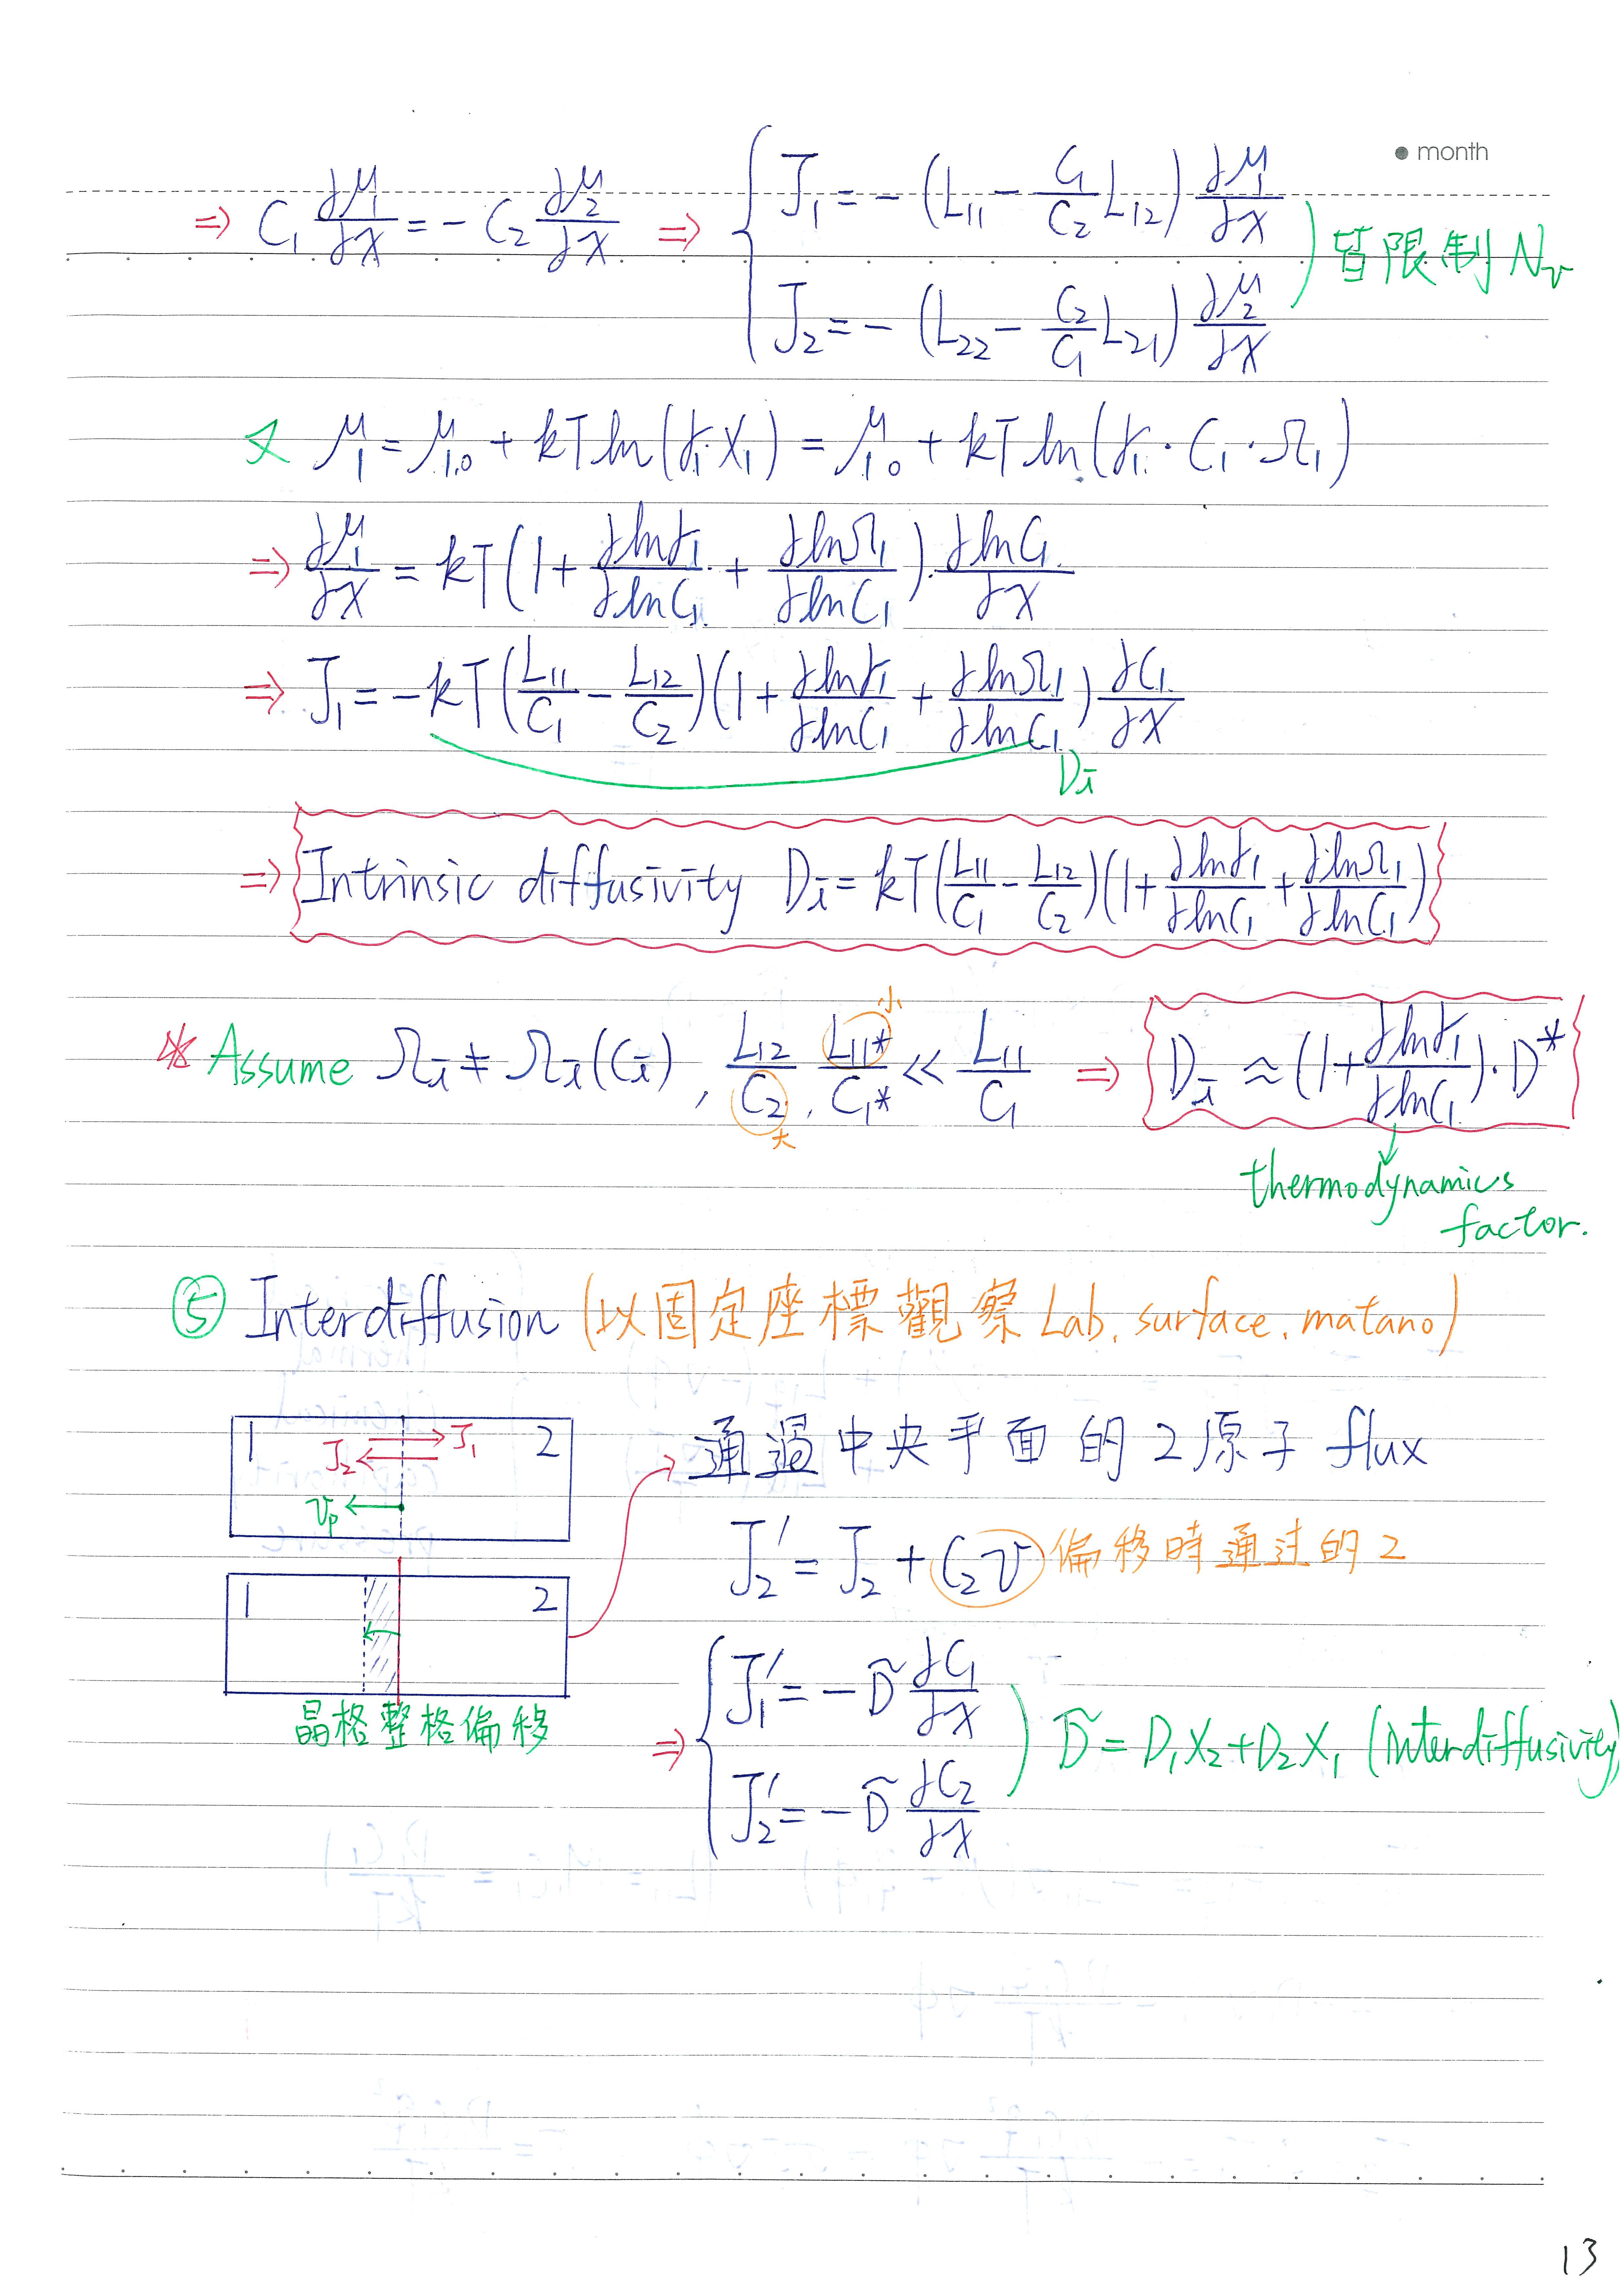 month
⇒ C₁ ∂μ₁/∂x = - C₂ ∂μ₂/∂x ⇒ { J₁ = - (L₁₁ - C₁/C₂ L₁₂) ∂μ₁/∂x
J₂ = - (L₂₂ - C₂/C₁ L₂₁) ∂μ₂/∂x ) 皆限制 Nv
又 μ₁ = μ₁,₀ + kT ln(γ₁·X₁) = μ₁₀ + kT ln(γ₁·C₁·Ω₁)
⇒ ∂μ₁/∂x = kT(1 + ∂lnγ₁/∂lnC₁ + ∂lnΩ₁/∂lnC₁)·∂lnC₁/∂x
⇒ J₁ = -kT(L₁₁/C₁ - L₁₂/C₂)(1 + ∂lnγ₁/∂lnC₁ + ∂lnΩ₁/∂lnC₁) ∂C₁/∂x
Dᵢ
⇒ Intrinsic diffusivity Dᵢ = kT(L₁₁/C₁ - L₁₂/C₂)(1 + ∂lnγ₁/∂lnC₁ + ∂lnΩ₁/∂lnC₁)
小
* Assume Ωᵢ ≠ Ωᵢ(Cᵢ), L₁₂/C₂, L₁₁*/C₁* << L₁₁/C₁ ⇒ Dᵢ ≈ (1 + ∂lnγ₁/∂lnC₁)·D*
大
thermodynamics
factor.
⑤ Interdiffusion (以固定座標觀察 Lab, surface, matano)
1 J₂ J₁ 2
vp
通過中央平面的2原子 flux
J₂' = J₂ + C₂v 偏移時通过的2
1 2
晶格整格偏移
⇒ { J₁' = -D̃ ∂C₁/∂x
J₂' = -D̃ ∂C₂/∂x ) D̃ = D₁X₂+D₂X₁ (interdiffusivity)
13